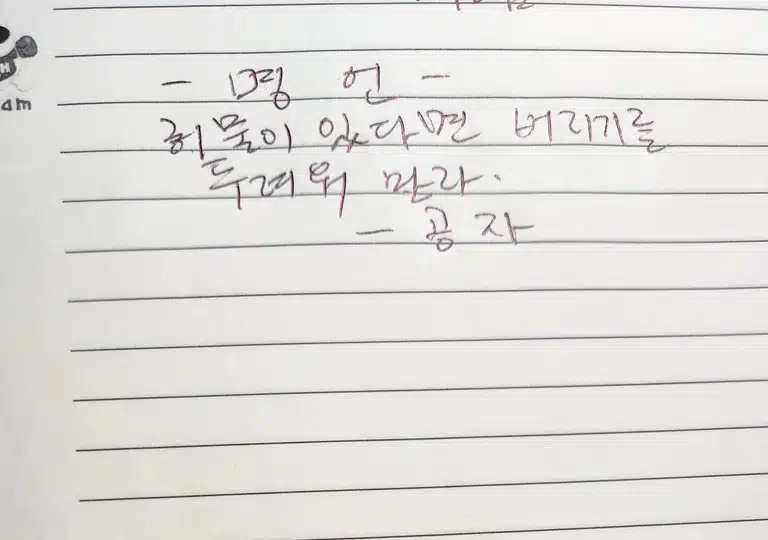 - 명 언 -
허물이 있다면 버리기를
두려워 말라.
- 공 자
am